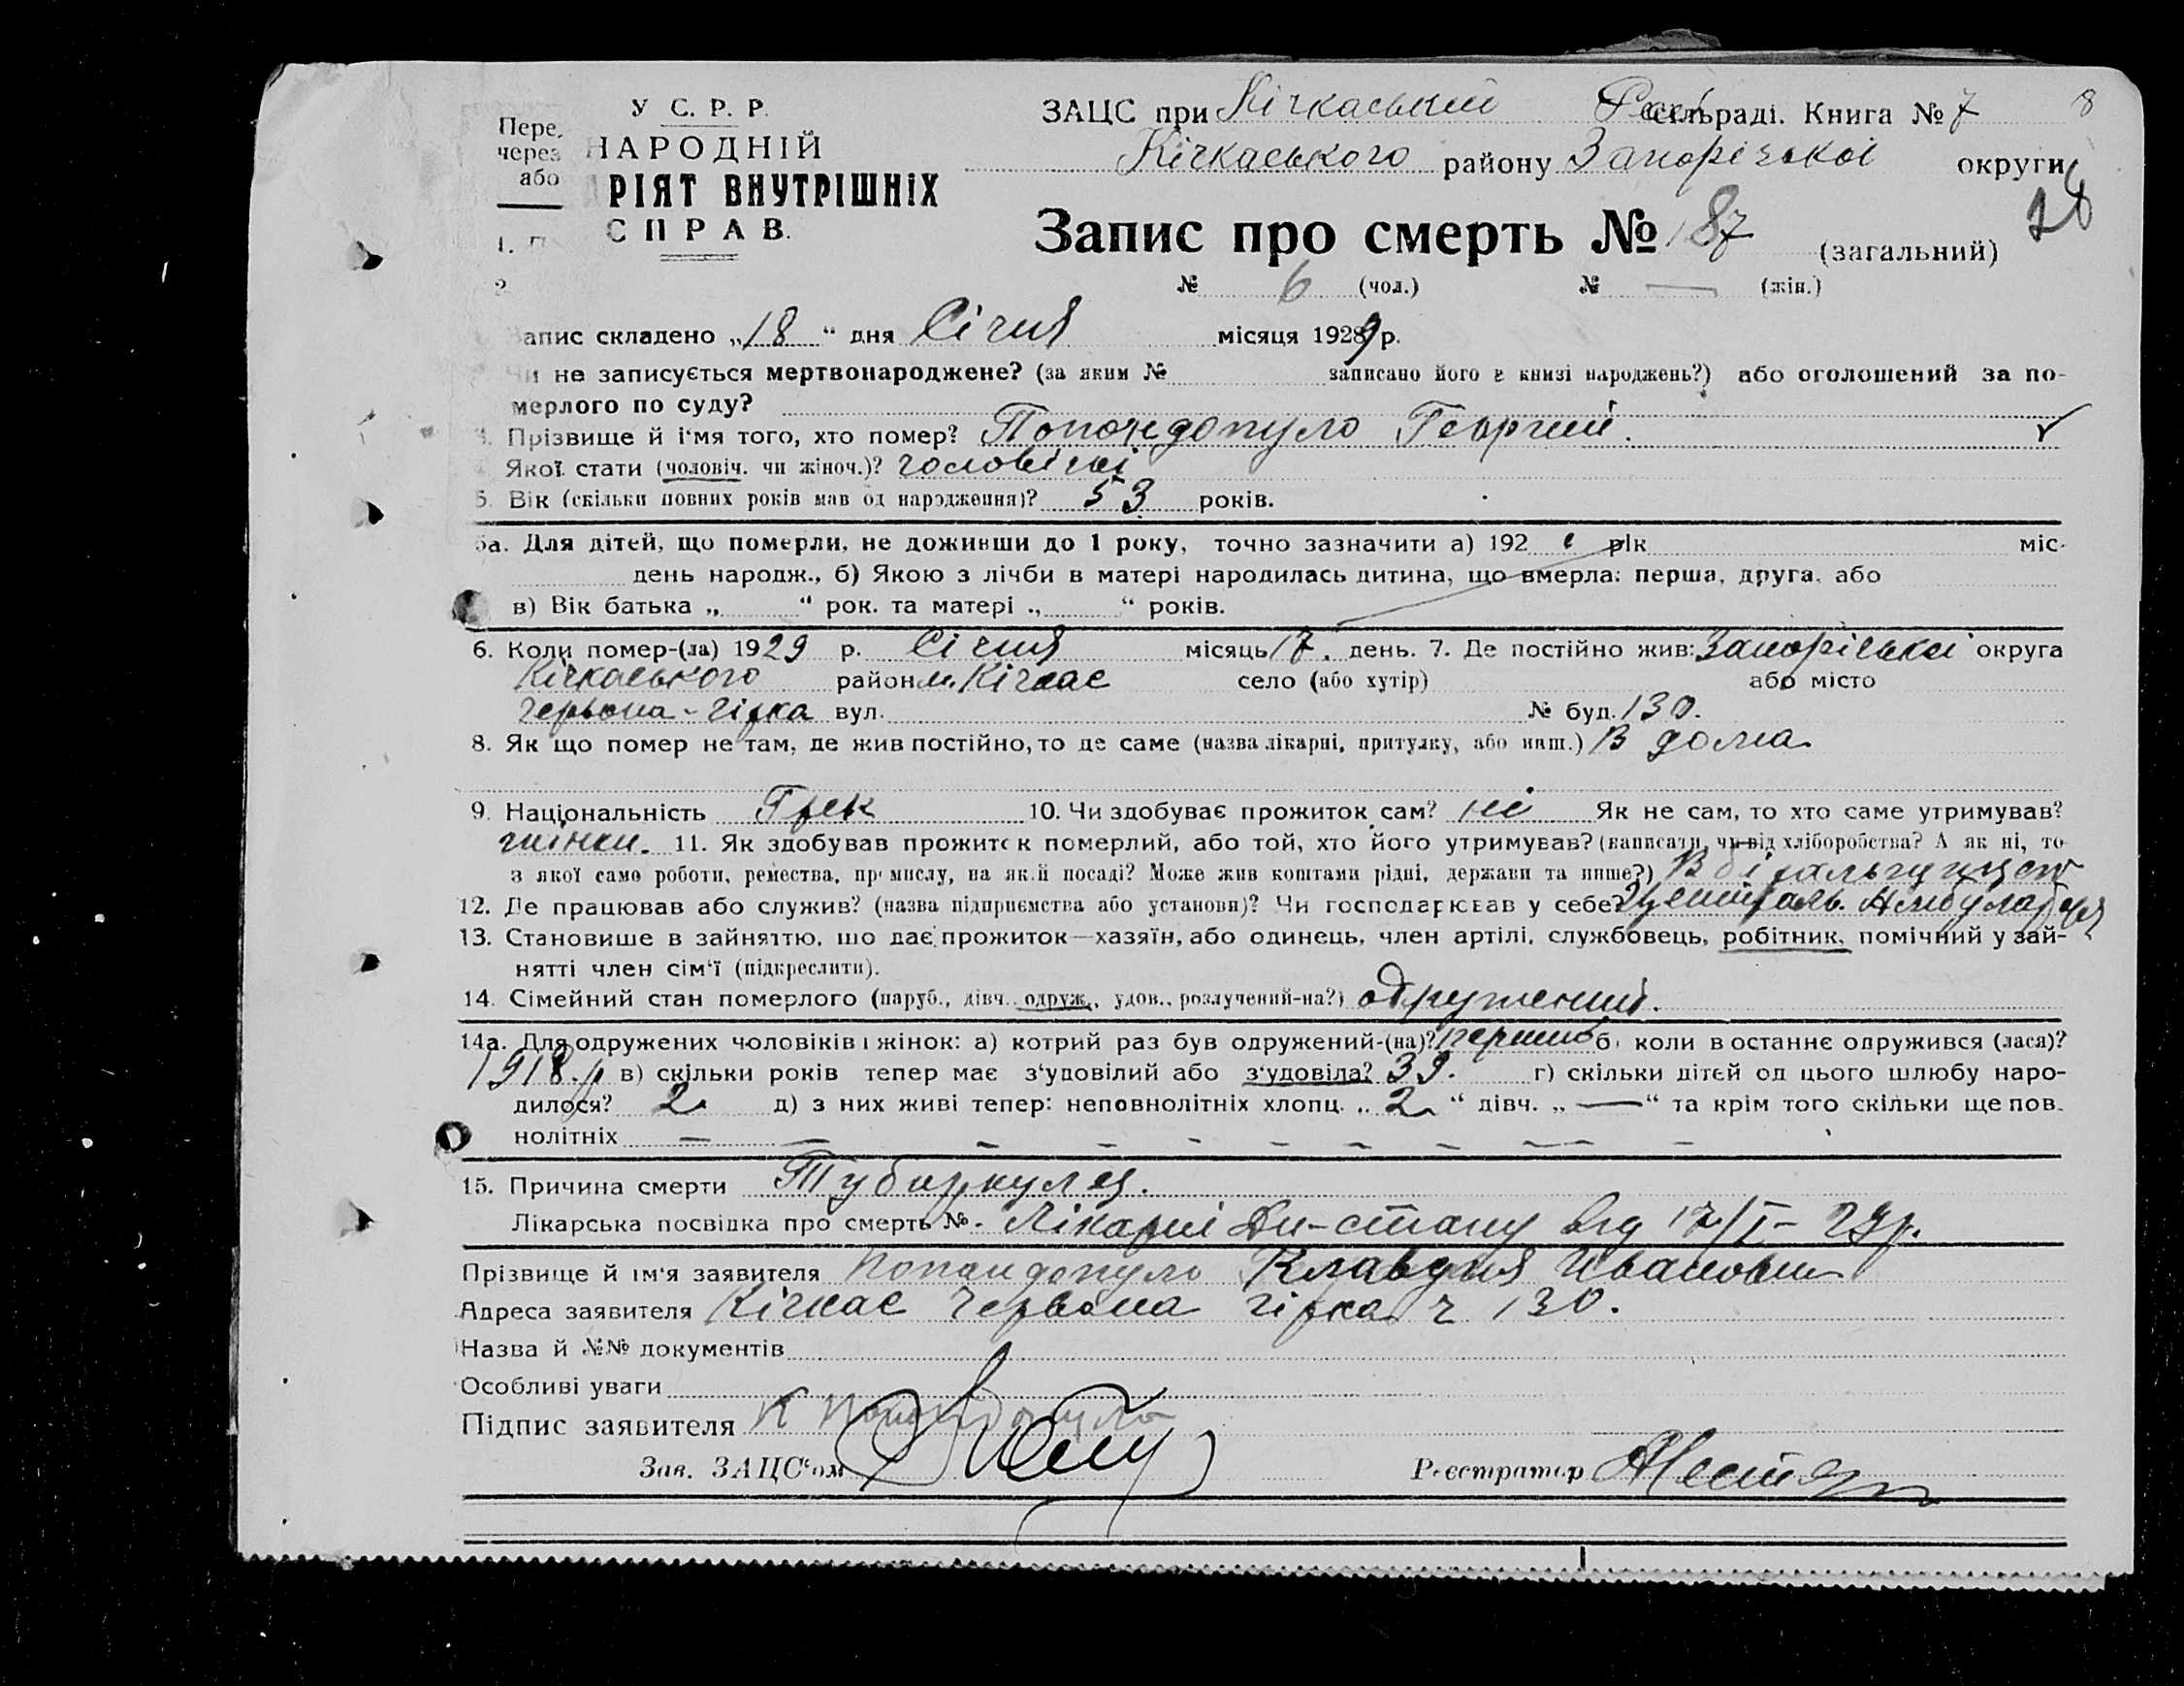 У С. Р. Р.
НАРОДНІЙ
РІЯТ ВНУТРІШНІХ
СПРАВ.
Пере.
через
або
1. П
2
ЗАЦС при Кічкаський сільраді. Книга № 7 8
Кічкаського району Запорізької округи
28
Запис про смерть № 187 (загальний)
№ 6 (чол.) № — (жін.)
апис складено „18“ дня Січня місяця 1929 р.
Чи не записується мертвонароджене? (за яким № записано його в книзі народжень?) або оголошений за по-
мерлого по суду?
3. Прізвище й ім'я того, хто помер? Попондопуло Георгий.
4. Якої статі (чоловіч. чи жіноч.)? чоловічкі
5. Вік (скільки повних років мав од народження)? 53 років.
5а. Для дітей, що померли, не доживши до 1 року, точно зазначити а) 192 рік міс.
день народж., б) Якою з лічби в матері народилась дитина, що вмерла: перша, друга, або
в) Вік батька „ “ рок. та матері „ “ років.
6. Коли помер-(ла) 1929 р. Січня місяць 17. день. 7. Де постійно жив: Запорізькі округа
Кічкаського район м. Кічкас село (або хутір) або місто
Червона-гірка вул. № буд. 130.
8. Як що помер не там, де жив постійно, то де саме (назва лікарні, притулку, або инш.) В дома
9. Національність Грек 10. Чи здобуває прожиток сам? ні Як не сам, то хто саме утримував?
жінки. 11. Як здобував прожиток померлий, або той, хто його утримував? (написати, чи від хліборобства? А як ні, то
з якої саме роботи, ремества, промислу, на якій посаді? Може жив коштами рідні, держави та инше?)
12. Де працював або служив? (назва підприємства або установи)? Чи господарював у себе? Централь. Амбулаторія
13. Становище в зайняттю, що дає прожиток—хазяїн, або одинець, член артілі, службовець, робітник, помічний у зай-
нятті член сім'ї (підкреслити).
14. Сімейний стан померлого (паруб., дівч., одруж., удов., розлучений-на?) одружений.
14а. Для одружених чоловіків і жінок: а) котрий раз був одружений-(на)? перший б) коли востаннє одружився (лася)?
1918. р в) скільки років тепер має з'удовілий або з'удовіла? 39. г) скільки дітей од цього шлюбу наро-
дилося? 2. д) з них живі тепер: неповнолітніх хлопц. „2.“ дівч. „—“ та крім того скільки ще пов-
нолітніх — — — — — — — — — — —
15. Причина смерти Тубиркулез.
Лікарська посвідка про смерть №. Лікарні Дн-стану від 17/I- 29р.
Прізвище й ім'я заявителя Попандопуло Клавдия Ивановна
Адреса заявителя Кічкас Червона гірка ч 130.
Назва й №№ документів
Особливі уваги
Підпис заявителя К Попандопуло
Зав. ЗАЦС'ом Реєстратор